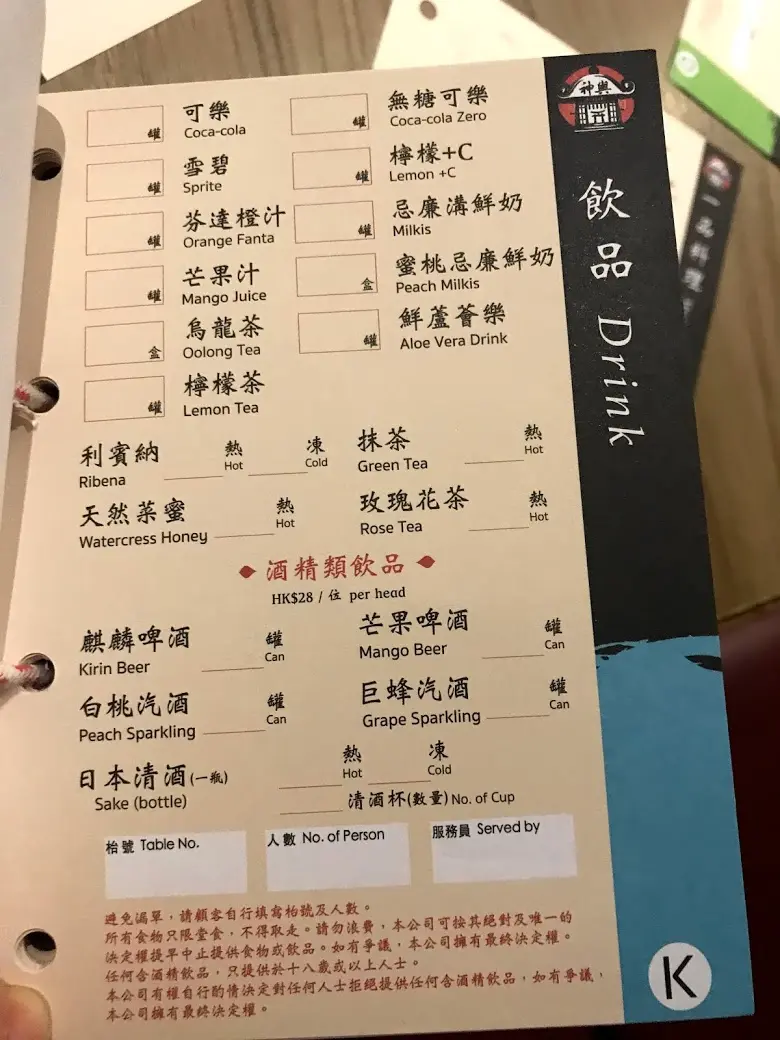 神輿
飲品 Drink
可樂
Coca-cola
罐
無糖可樂
Coca-cola Zero
罐
雪碧
Sprite
罐
檸檬+C
Lemon +C
罐
芬達橙汁
Orange Fanta
罐
忌廉溝鮮奶
Milkis
罐
芒果汁
Mango Juice
罐
蜜桃忌廉鮮奶
Peach Milkis
盒
烏龍茶
Oolong Tea
盒
鮮蘆薈樂
Aloe Vera Drink
罐
檸檬茶
Lemon Tea
罐
利賓納 熱 凍
Ribena Hot Cold
抹茶 熱
Green Tea Hot
天然菜蜜 熱
Watercress Honey Hot
玫瑰花茶 熱
Rose Tea Hot
酒精類飲品
HK$28 / 位 per head
麒麟啤酒 罐
Kirin Beer Can
芒果啤酒 罐
Mango Beer Can
白桃汽酒 罐
Peach Sparkling Can
巨蜂汽酒 罐
Grape Sparkling Can
日本清酒(一瓶) 熱 凍
Sake (bottle) Hot Cold
清酒杯(數量) No. of Cup
枱號 Table No.
人數 No. of Person
服務員 Served by
避免漏單，請顧客自行填寫枱號及人數。
所有食物只限堂食，不得取走。請勿浪費，本公司可按其絕對及唯一的
決定權提早中止提供食物或飲品。如有爭議，本公司擁有最終決定權。
任何含酒精飲品，只提供於十八歲或以上人士。
本公司有權自行酌情決定對任何人士拒絕提供任何含酒精飲品，如有爭議，
本公司擁有最終決定權。
K
一品料理